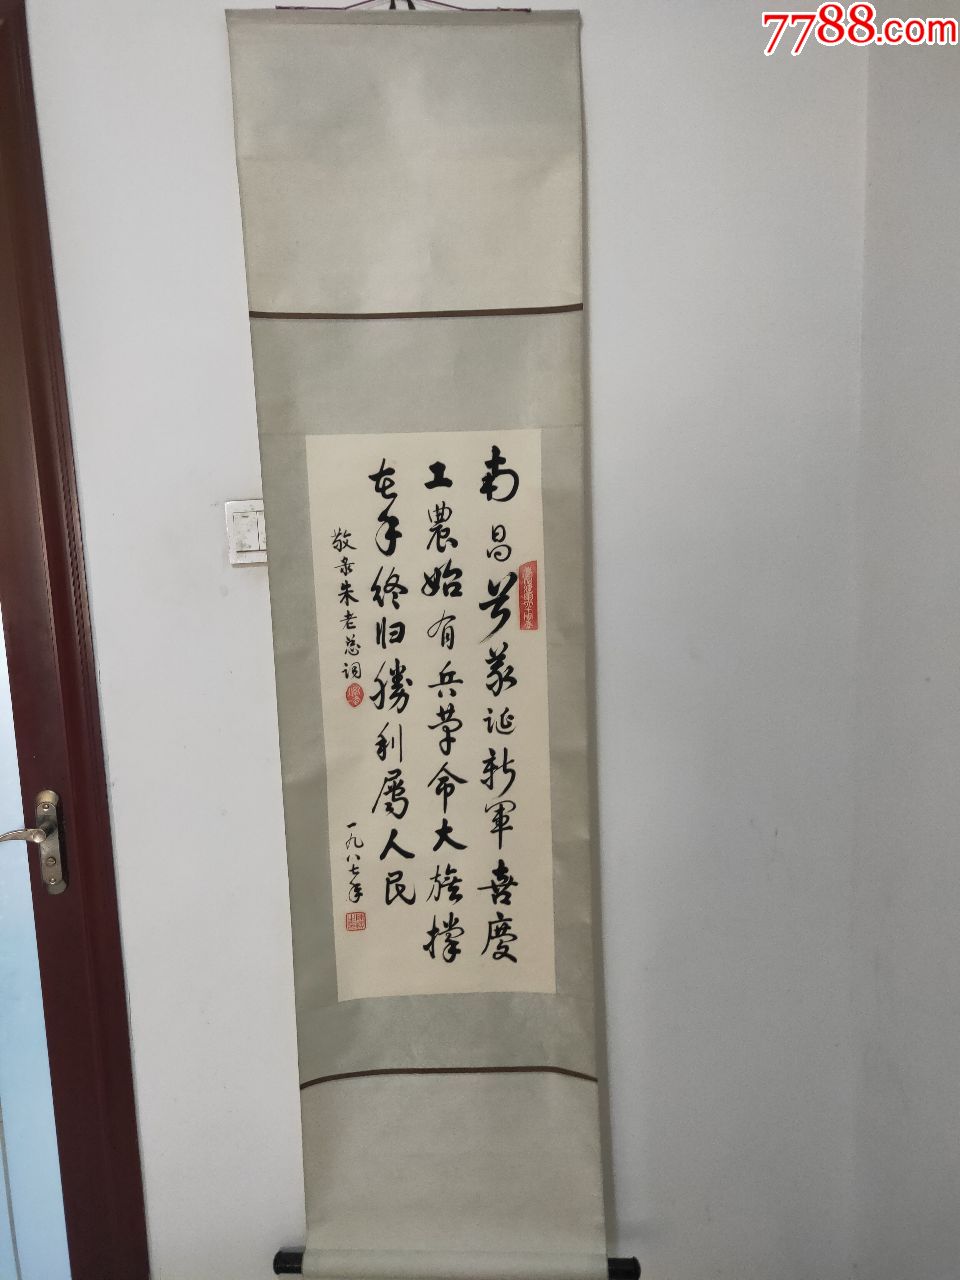 7788.com
南昌首义诞新軍喜慶
工農始有兵革命大旗撑
在手终归勝利屬人民
敬录朱老总词
一九八七年